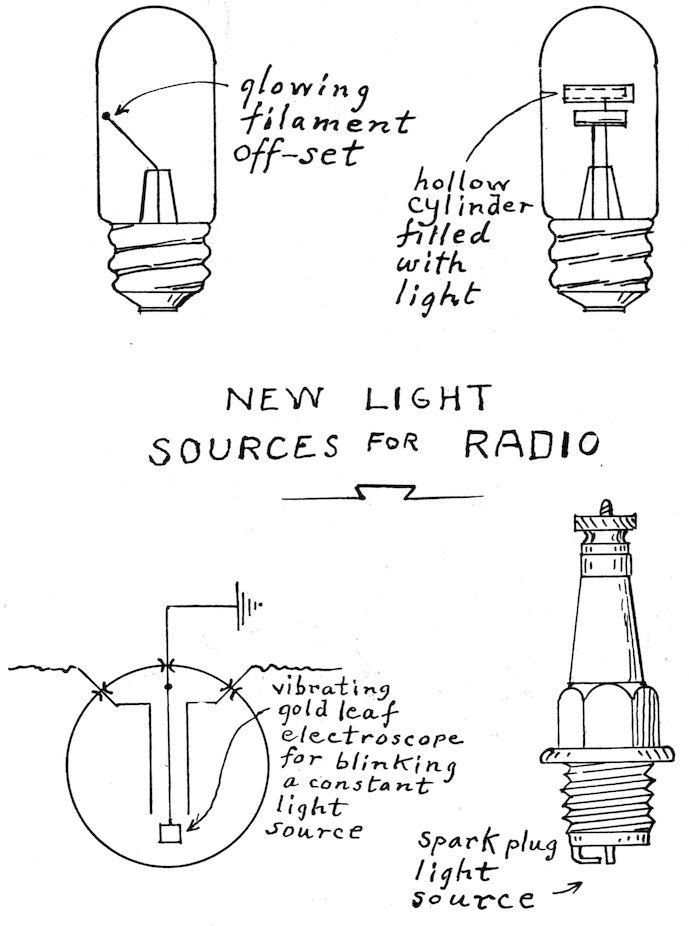 glowing
filament
off-set
hollow
cylinder
filled
with
light
NEW LIGHT
SOURCES FOR RADIO
vibrating
gold leaf
electroscope
for blinking
a constant
light
source
spark plug
light
source